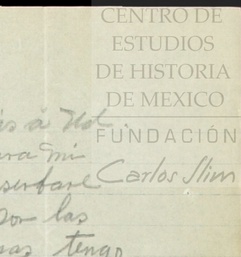 CENTRO DE
ESTUDIOS
DE HISTORIA
DE MEXICO
FUNDACIÓN
Carlos Slim
is á Ud.
ara mi
por las
tengo